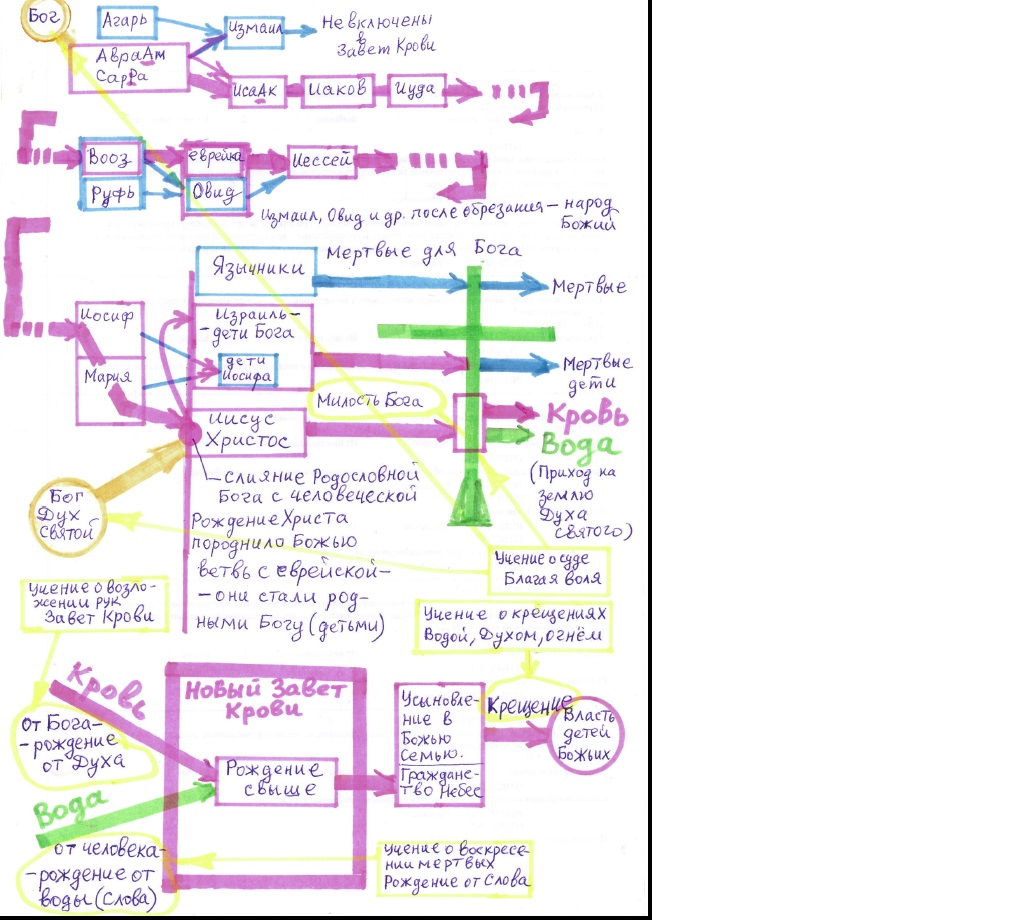 Бог
Агарь
Измаил
Не включены
в
Завет Крови
АвраАм
СарРа
ИсаАк
Иаков
Иуда
Вооз
еврейка
Иессей
Руфь
Овид
Измаил, Овид и др. после обрезания — народ
Божий
Мертвые для Бога
Язычники
Мертвые
Иосиф
Израиль-
-дети Бога
дети
Иосифа
Мертвые
дети
Мария
Милость Бога
Иисус
Христос
Кровь
Вода
(Приход на
землю
Духа
святого)
слияние Родословной
Бога с человеческой
Бог
Дух
Святой
Рождение Христа
породнило Божью
ветвь с еврейской-
-они стали род-
ными Богу (детьми)
Учение о суде
Благая воля
Учение о возло-
жении рук
Завет Крови
Учение о крещениях
Водой, Духом, огнём
Кровь
Новый Завет
Крови
Усыновле-
ние в
Божью
Семью.
Гражданс-
тво Небес
Крещение
Власть
детей
Божьих
от Бога-
-рождение
от Духа
Рождение
свыше
Вода
от человека-
-рождение от
воды (Слова)
Учение о воскресе-
нии мертвых
Рождение от Слова